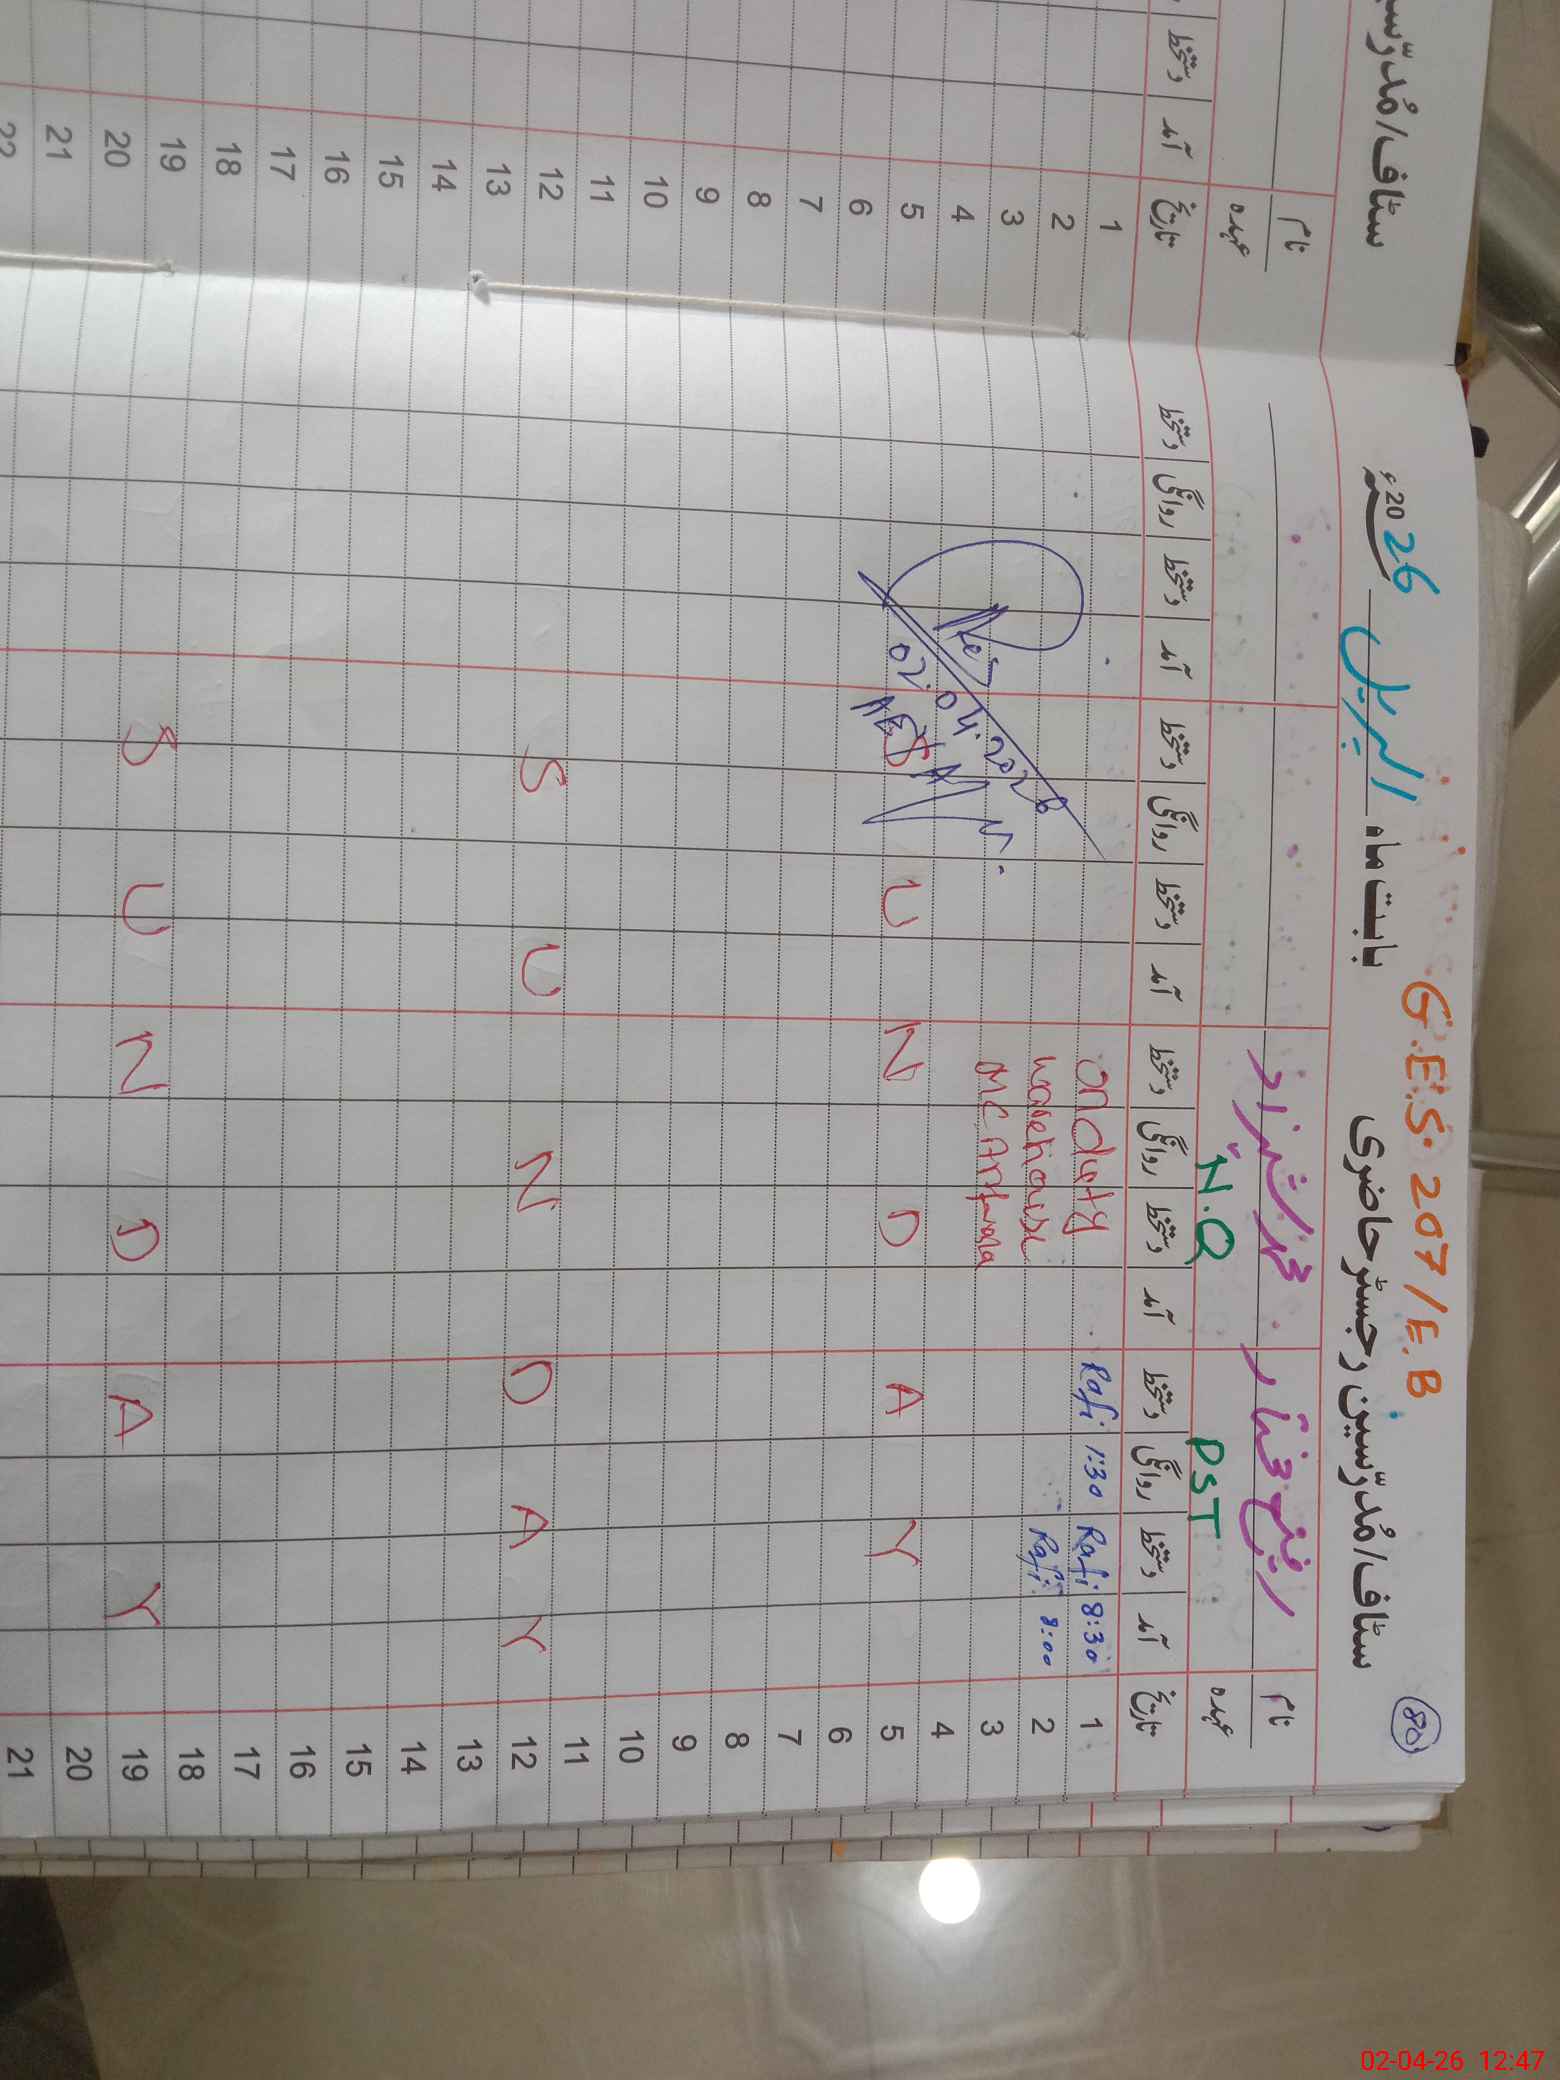 G.E.S. 207/E.B
80
سٹاف/مُدرّسین رجسٹر حاضری بابت ماہ اپریل 2026ء
نام رفیع مختار محمد شہزاد
عہدہ PST N.Q
تاریخ آمد دستخط روانگی دستخط آمد دستخط روانگی دستخط آمد دستخط روانگی دستخط آمد دستخط روانگی دستخط
1 8:30 Rafi 1:30 Rafi on duty
2 8:00 Rafi warehouse
3 MC Arifwala
4
5 S U N D A Y
02.04.2026
6
7
8
9
10
11
12 S U N D A Y
13
14
15
16
17
18
19 S U N D A Y
20
21
سٹاف/مُدرّسی
نام
عہدہ
تاریخ آمد دستخط
1
2
3
4
5
6
7
8
9
10
11
12
13
14
15
16
17
18
19
20
21
22
02-04-26 12:47